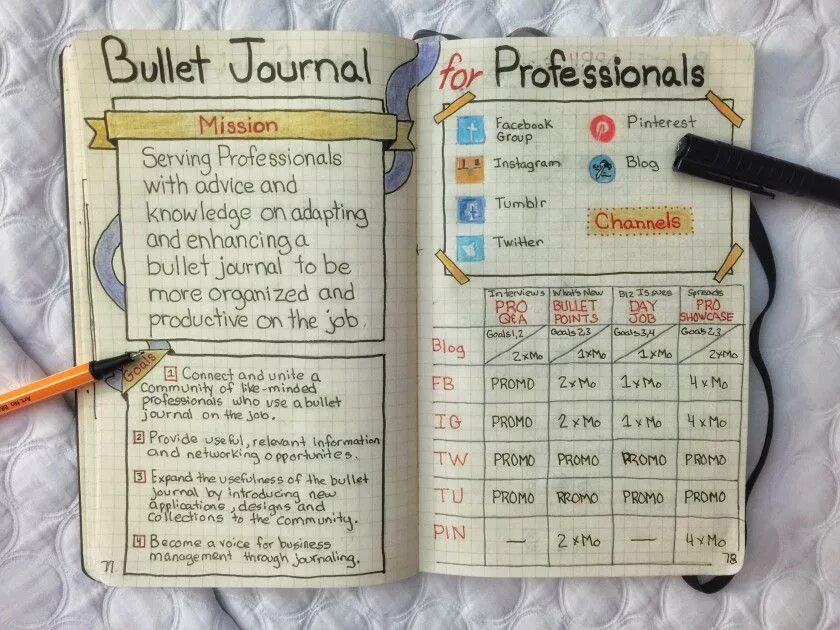 Bullet Journal
Mission
Serving Professionals
with advice and
knowledge on adapting
and enhancing a
bullet journal to be
more organized and
productive on the job.
Goals
1 Connect and unite a
community of like-minded
professionals who use a bullet
journal on the job.
2 Provide useful, relevant information
and networking opportunites.
3 Expand the usefulness of the bullet
journal by introducing new
applications, designs and
collections to the community.
4 Become a voice for business
management through journaling.
77
for Professionals
Facebook
Group
Instagram
Tumblr
Twitter
Pinterest
Blog
Channels
Interviews What's New Biz Issues Spreads
PRO BULLET DAY PRO
Q&A POINTS JOB SHOWCASE
Blog Goals 1,2 Goals 2,3 Goals 3,4 Goals 2,3
2xMo 1xMo 1xMo 2xMo
FB PROMO 2xMo 1xMo 4xMo
IG PROMO 2xMo 1xMo 4xMo
TW PROMO PROMO PROMO PROMO
TU PROMO PROMO PROMO PROMO
PIN — 2xMo — 4xMo
78